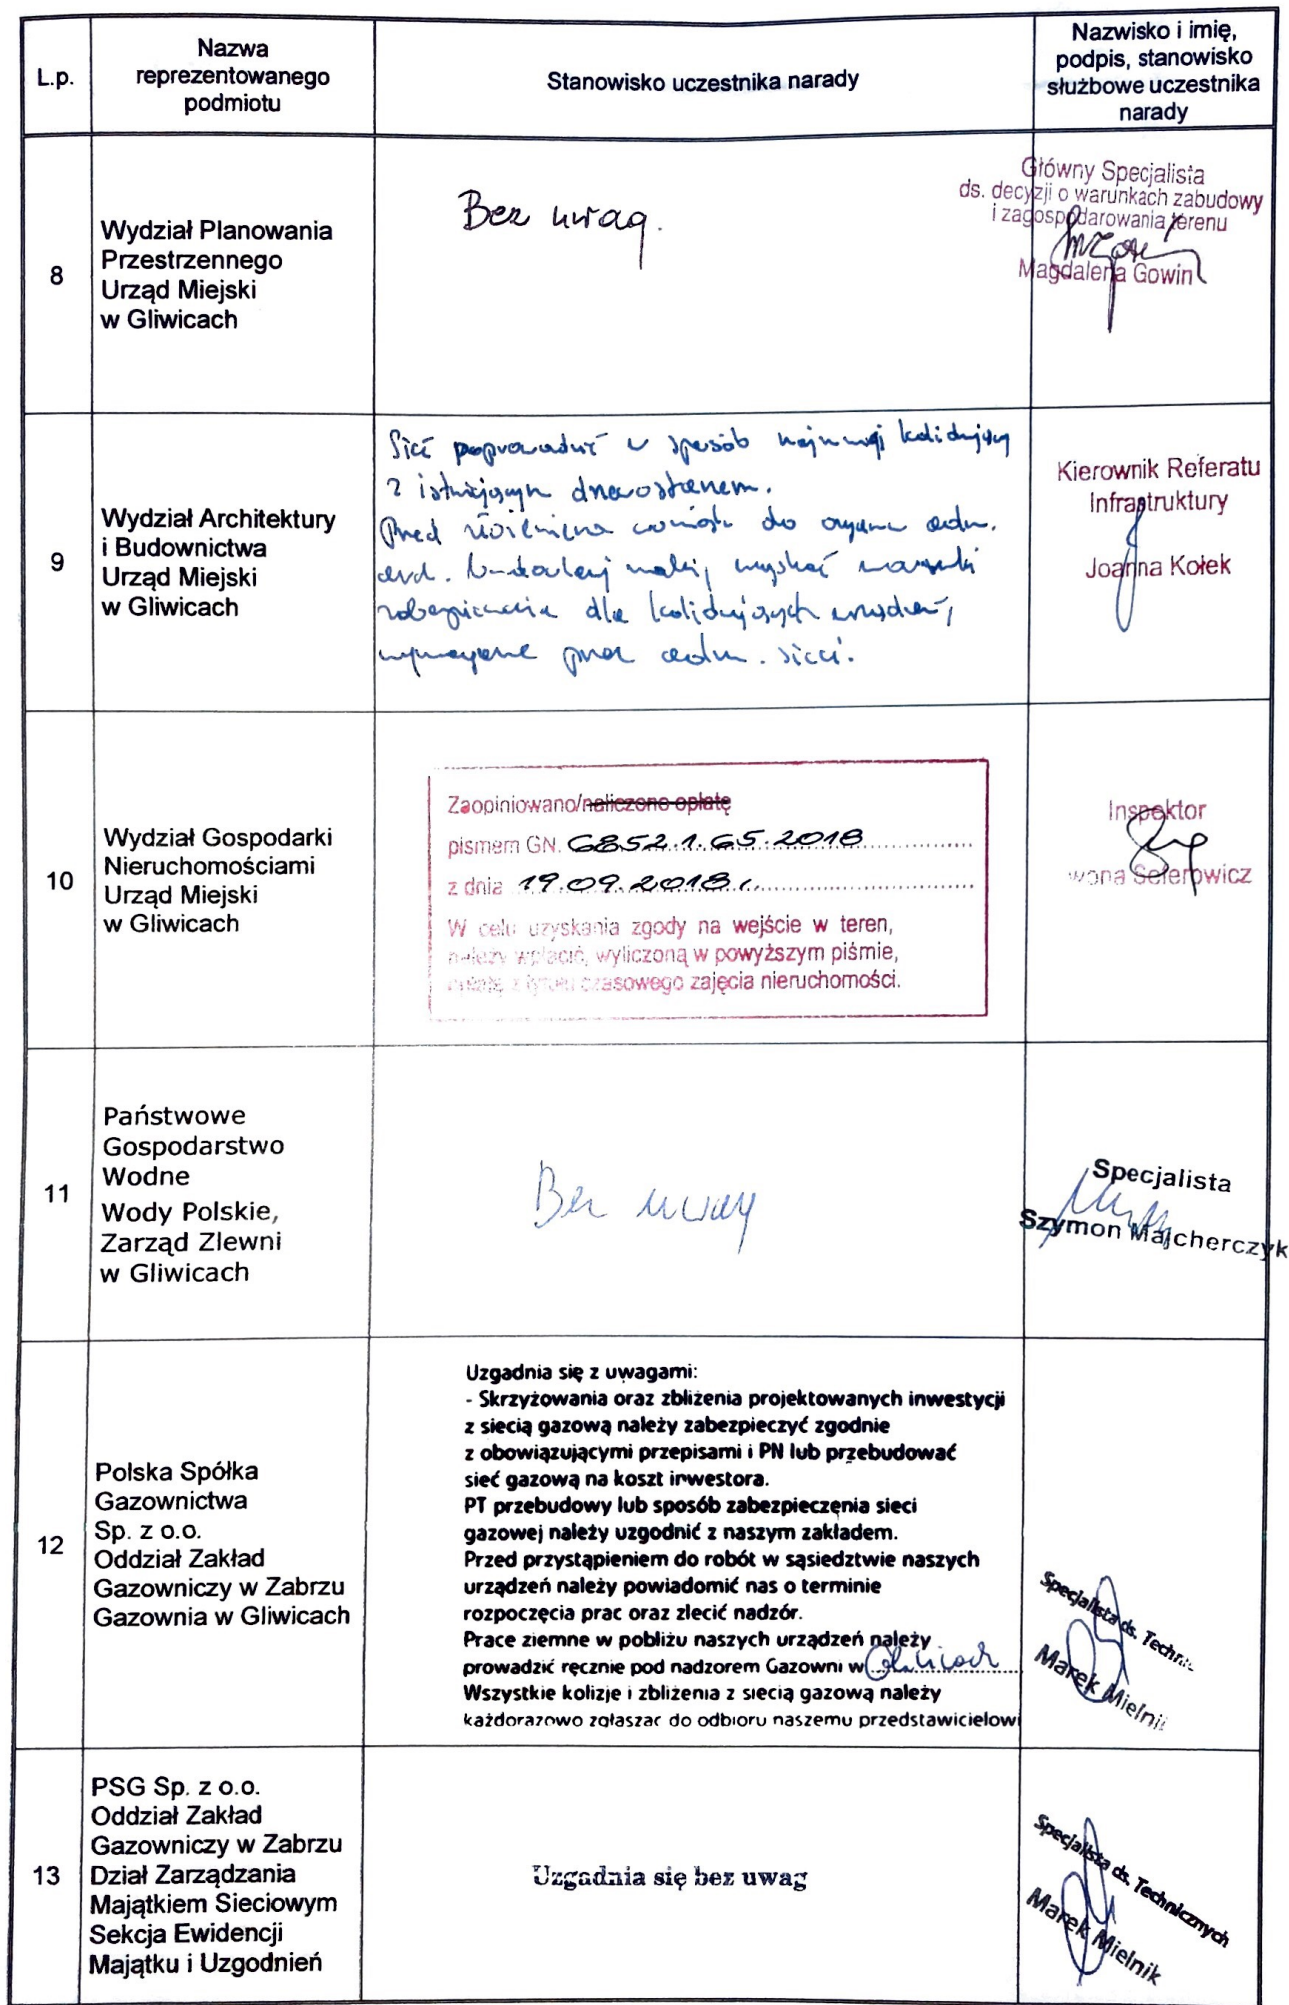 L.p.
Nazwa
reprezentowanego
podmiotu
Stanowisko uczestnika narady
Nazwisko i imię,
podpis, stanowisko
służbowe uczestnika
narady
8
Wydział Planowania
Przestrzennego
Urząd Miejski
w Gliwicach
Bez uwag.
Główny Specjalista
ds. decyzji o warunkach zabudowy
i zagospodarowania terenu
Magdalena Gowin
9
Wydział Architektury
i Budownictwa
Urząd Miejski
w Gliwicach
Sieć poprowadzić w sposób najmniej kolidujący
z istniejącym drzewostanem.
Przed do organu adm.
uzyskać warunki
zabezpieczenia dla kolidujących urządzeń,
wymagane przez adm. sieci.
Kierownik Referatu
Infrastruktury
Joanna Kołek
10
Wydział Gospodarki
Nieruchomościami
Urząd Miejski
w Gliwicach
Zaopiniowano/naliczono opłatę
pismem GN. 6852.1.65.2018
z dnia 19.09.2018r.
W celu uzyskania zgody na wejście w teren,
należy wpłacić, wyliczoną w powyższym piśmie,
opłatę z tytułu czasowego zajęcia nieruchomości.
Inspektor
wona Seferowicz
11
Państwowe
Gospodarstwo
Wodne
Wody Polskie,
Zarząd Zlewni
w Gliwicach
Bez uwag
Specjalista
Szymon Majcherczyk
12
Polska Spółka
Gazownictwa
Sp. z o.o.
Oddział Zakład
Gazowniczy w Zabrzu
Gazownia w Gliwicach
Uzgadnia się z uwagami:
- Skrzyżowania oraz zbliżenia projektowanych inwestycji
z siecią gazową należy zabezpieczyć zgodnie
z obowiązującymi przepisami i PN lub przebudować
sieć gazową na koszt inwestora.
PT przebudowy lub sposób zabezpieczenia sieci
gazowej należy uzgodnić z naszym zakładem.
Przed przystąpieniem do robót w sąsiedztwie naszych
urządzeń należy powiadomić nas o terminie
rozpoczęcia prac oraz zlecić nadzór.
Prace ziemne w pobliżu naszych urządzeń należy
prowadzić ręcznie pod nadzorem Gazowni w Gliwicach
Wszystkie kolizje i zbliżenia z siecią gazową należy
każdorazowo zgłaszać do odbioru naszemu przedstawicielowi
Specjalista ds. Techn
Marek Mielni
13
PSG Sp. z o.o.
Oddział Zakład
Gazowniczy w Zabrzu
Dział Zarządzania
Majątkiem Sieciowym
Sekcja Ewidencji
Majątku i Uzgodnień
Uzgadnia się bez uwag
Specjalista ds. Technicznych
Marek Mielnik